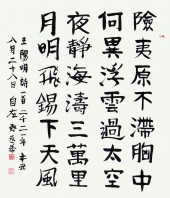 險夷原不滯胸中
何異浮雲過太空
夜靜海濤三萬里
月明飛錫下天風
王陽明詩一首 二千二十一年 辛丑
八月二十八日 自在